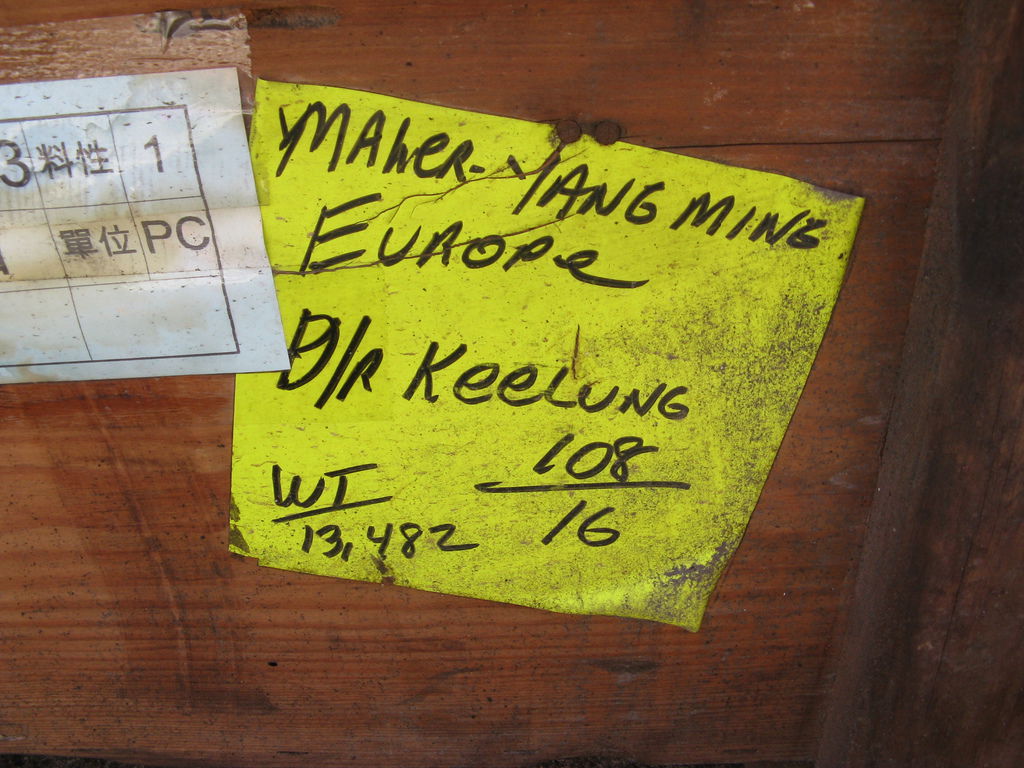 3 料性 1
單位 PC
MAHER - YANG MING
EUROPE
D/R KEELUNG
WT
13,482
108
16